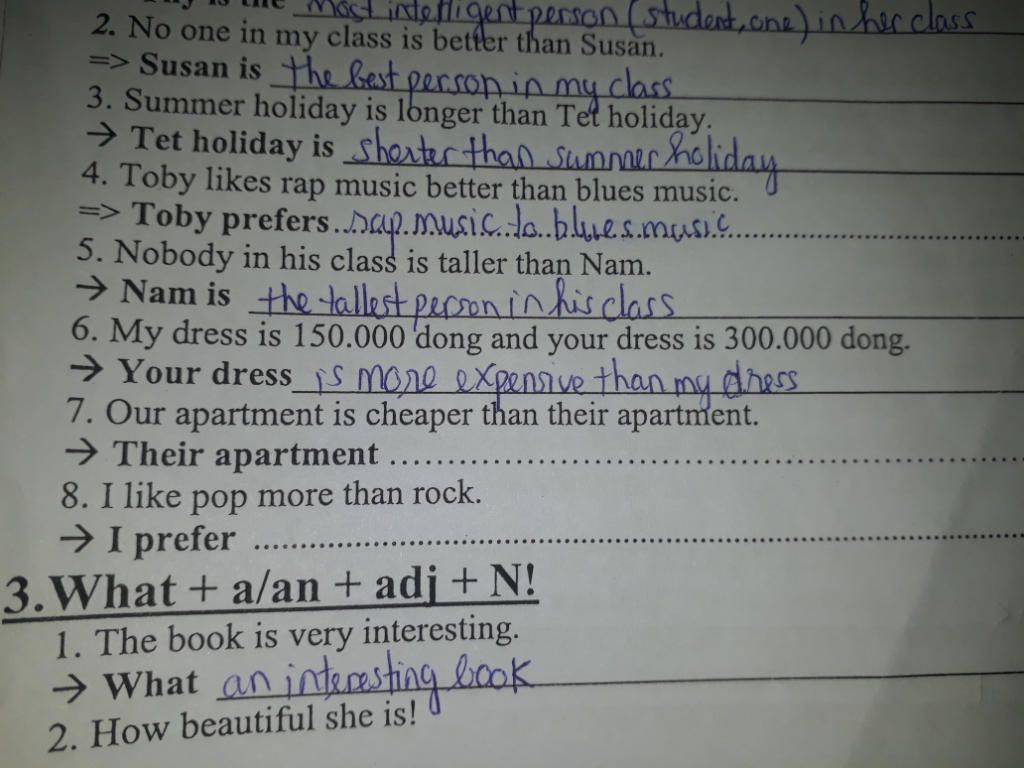 is the most intelligent person (student, one) in her class
2. No one in my class is better than Susan.
=> Susan is the best person in my class
3. Summer holiday is longer than Tet holiday.
→ Tet holiday is shorter than summer holiday
4. Toby likes rap music better than blues music.
=> Toby prefers..rap.music..to..blues.music......
5. Nobody in his class is taller than Nam.
→ Nam is the tallest person in his class
6. My dress is 150.000 dong and your dress is 300.000 dong.
→ Your dress is more expensive than my dress
7. Our apartment is cheaper than their apartment.
→ Their apartment ......................................................
8. I like pop more than rock.
→ I prefer ......................................................
3. What + a/an + adj + N!
1. The book is very interesting.
→ What an interesting book
2. How beautiful she is!